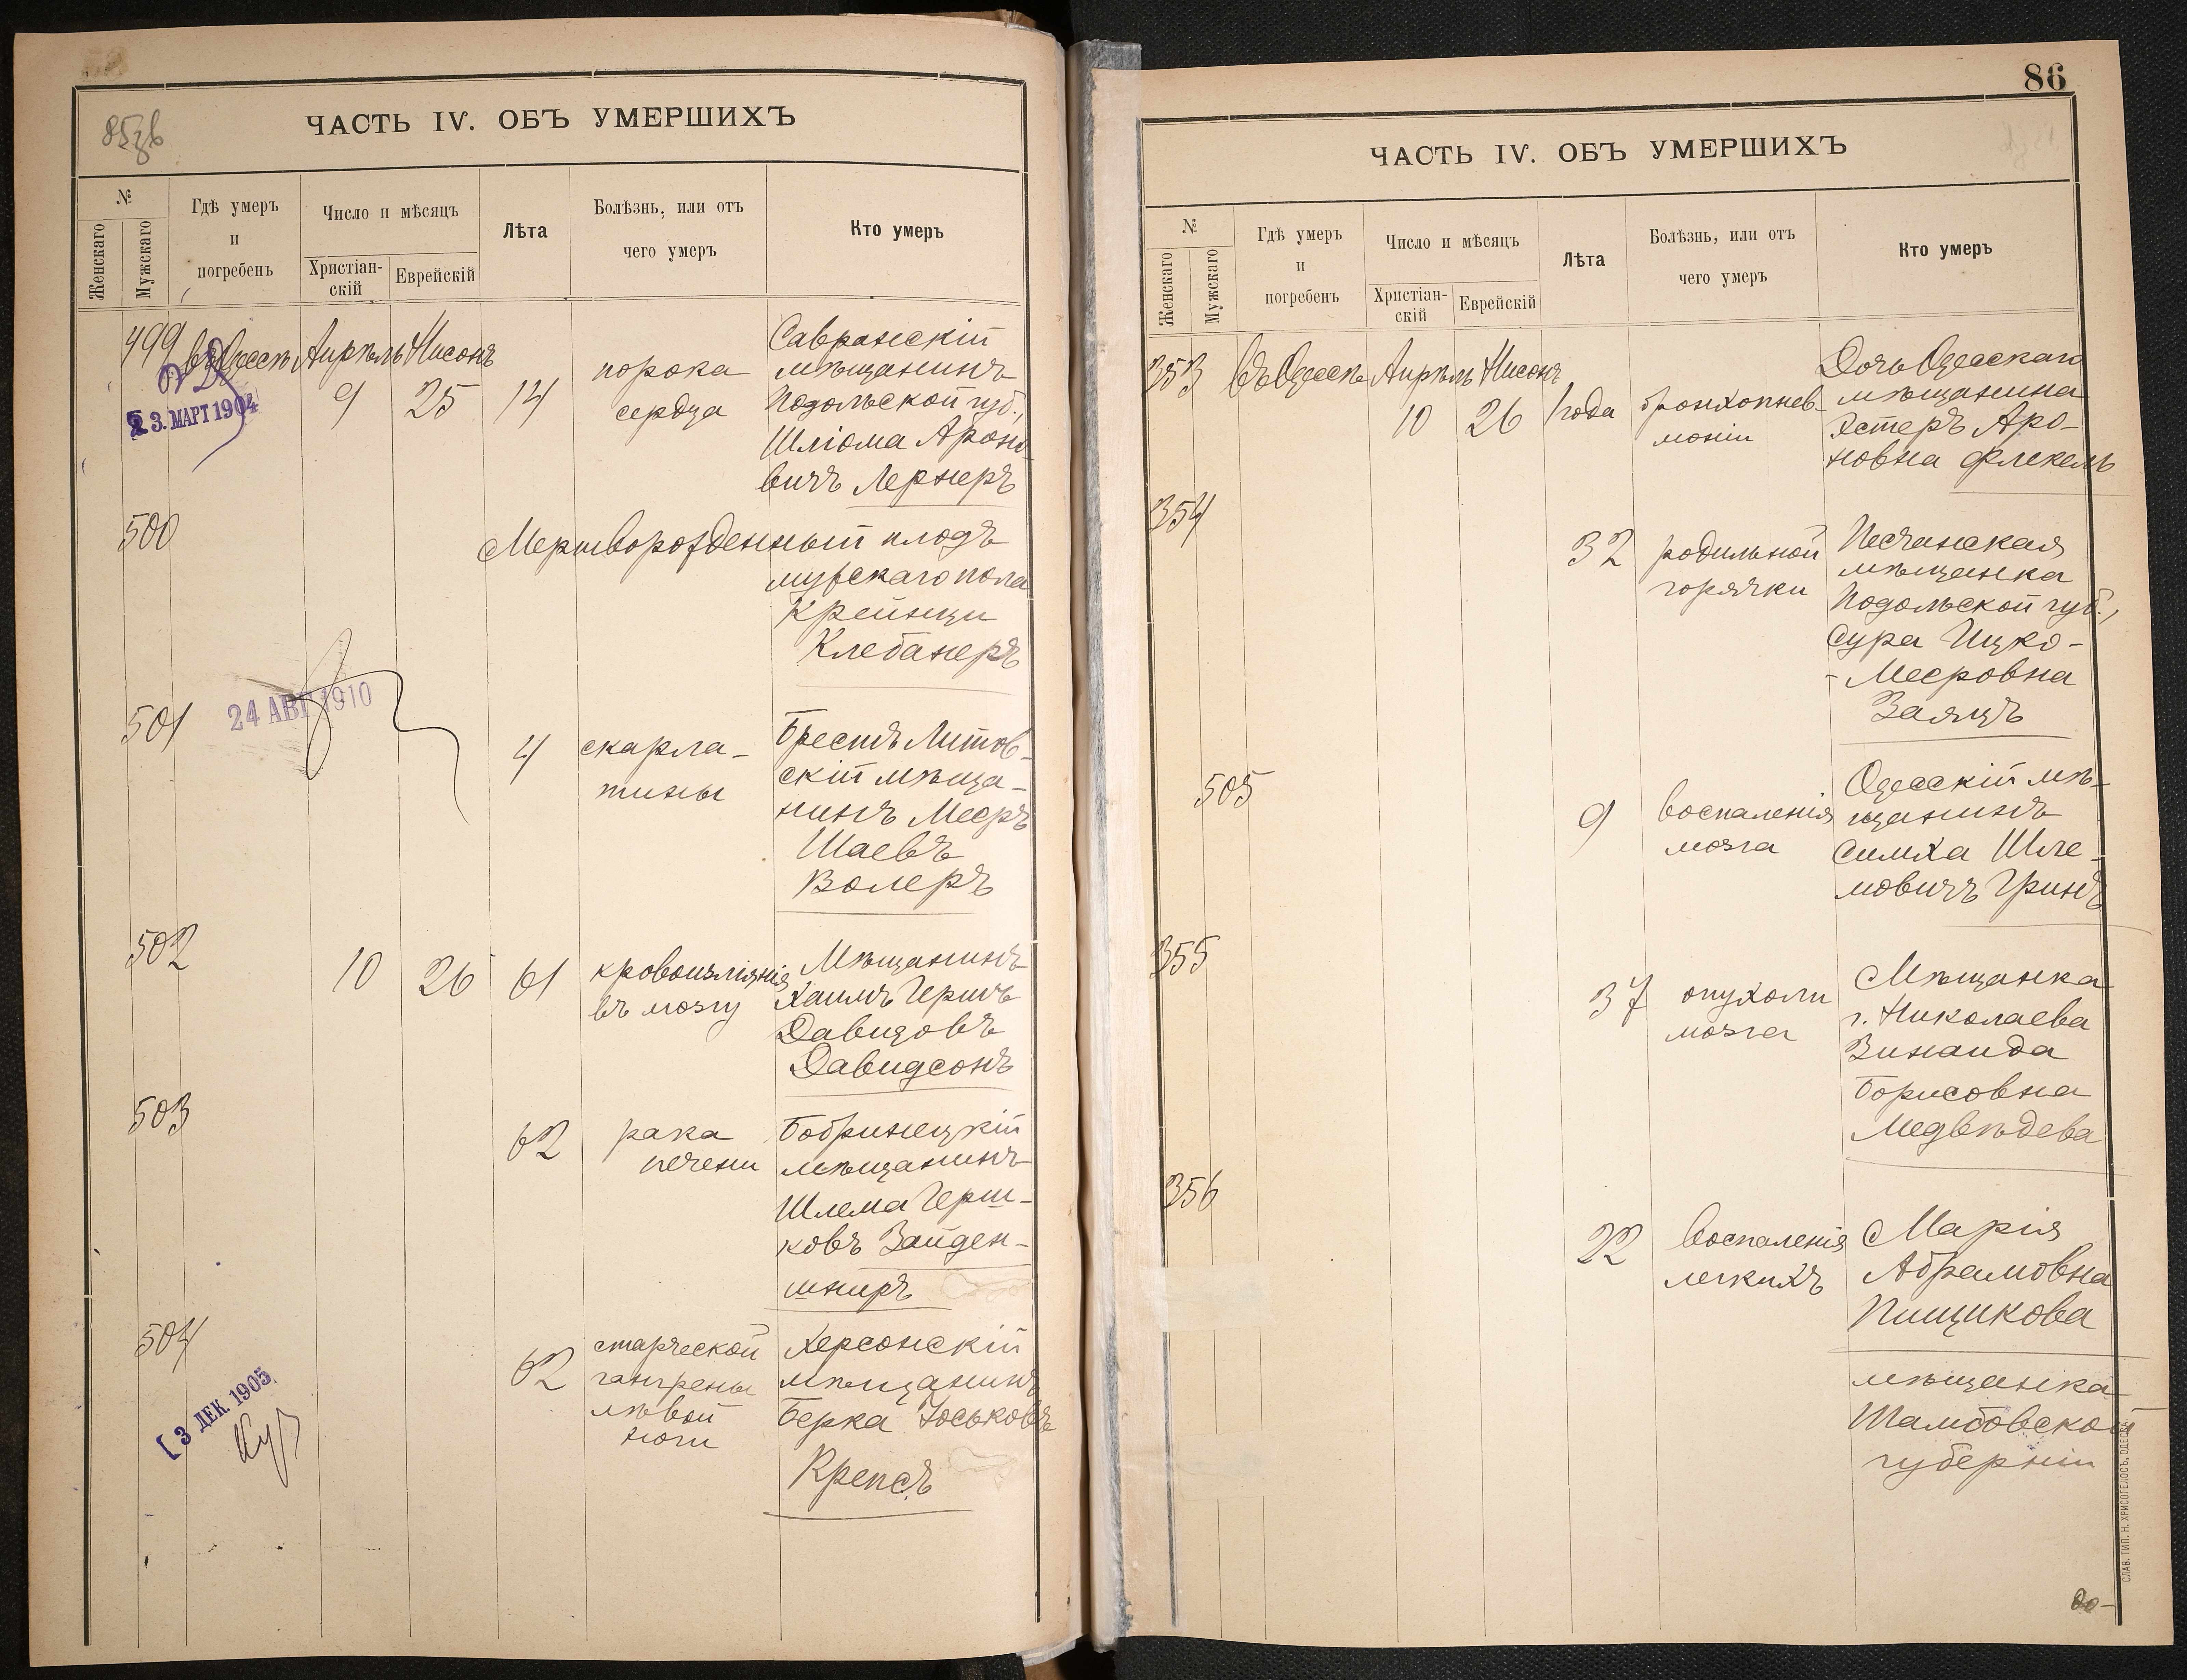 85
ЧАСТЬ IV. ОБЪ УМЕРШИХЪ
№
Женскаго
Мужскаго
Гдѣ умеръ
и
погребенъ
Число и мѣсяцъ
Христіан-
скій
Еврейскій
Лѣта
Болѣзнь, или отъ
чего умеръ
Кто умеръ
499
въ Одессѣ
Апрѣль
Нисонъ
9
25
14
порока
сердца
Савранскій
мѣщанинъ
Подольской губ.,
Шліома Ароно-
вичъ Лернеръ
23. МАРТ 1904
500
Мертворожденный плодъ
мужскаго пола
Крейнци
Клебанеръ
24 АВГ 1910
501
4
скарла-
тины
Брестъ Литов-
скій мѣща-
нинъ Мееръ
Шаевъ
Волеръ
502
10
26
61
кровоизліянія
въ мозгу
Мѣщанинъ
Хаимъ Гершъ
Давидовъ
Давидсонъ
503
62
рака
печени
Бобринецкій
мѣщанинъ
Шлема Герш-
ковъ Зайден-
шниръ
504
62
старческой
гангрены
лѣвой
ноги
Херсонскій
мѣщанинъ
Берка Іоськовъ
Крепсъ
3 ДЕК. 1905
86
ЧАСТЬ IV. ОБЪ УМЕРШИХЪ
№
Женскаго
Мужскаго
Гдѣ умеръ
и
погребенъ
Число и мѣсяцъ
Христіан-
скій
Еврейскій
Лѣта
Болѣзнь, или отъ
чего умеръ
Кто умеръ
353
въ Одессѣ
Апрѣль
Нисонъ
10
26
1 года
бронхопнев-
моніи
Дочь Одесскаго
мѣщанина
Эстеръ Аро-
новна Флекель
354
32
родильной
горячки
Песчанская
мѣщанка
Подольской губ.,
Сура Ицко-
-Мееровна
Заяцъ
505
9
воспаленія
мозга
Одесскій мѣ-
щанинъ
Симха Шле-
мовичъ Гринъ
355
37
опухоли
мозга
Мѣщанка
г. Николаева
Зинаида
Борисовна
Медвѣдева
356
22
воспаленія
легкихъ
Марія
Абрамовна
Пищикова
мѣщанка
Тамбовской
губерніи
СЛАВ. ТИП. Н. ХРИСОГЕЛОСЪ, ОДЕССА.